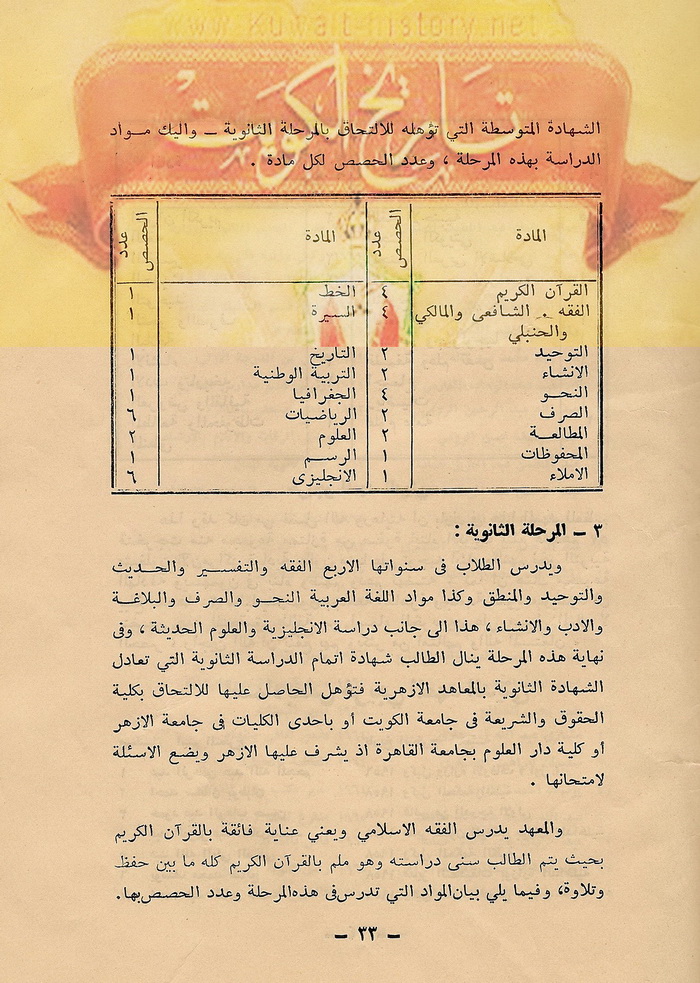 www.Kuwait-history.net
تاريخ الكويت
الشهادة المتوسطة التي تؤهله للالتحاق بالمرحلة الثانوية ــ واليك مواد
الدراسة بهذه المرحلة ، وعدد الحصص لكل مادة .
المادة عدد الحصص المادة عدد الحصص
القرآن الكريم ٤ الخط ١
الفقه الشافعى والمالكي ٤ السيرة ١
والحنبلي
التوحيد ٢ التاريخ ١
الانشاء ٢ التربية الوطنية ١
النحو ٤ الجغرافيا ١
الصرف ٢ الرياضيات ٦
المطالعة ٢ العلوم ٢
المحفوظات ١ الرسم ١
الاملاء ١ الانجليزى ٦
٣ ــ المرحلة الثانوية :
ويدرس الطلاب فى سنواتها الاربع الفقه والتفسير والحديث
والتوحيد والمنطق وكذا مواد اللغة العربية النحو والصرف والبلاغة
والادب والانشاء ، هذا الى جانب دراسة الانجليزية والعلوم الحديثة ، وفى
نهاية هذه المرحلة ينال الطالب شهادة اتمام الدراسة الثانوية التي تعادل
الشهادة الثانوية بالمعاهد الازهرية فتؤهل الحاصل عليها للالتحاق بكلية
الحقوق والشريعة فى جامعة الكويت أو باحدى الكليات فى جامعة الازهر
أو كلية دار العلوم بجامعة القاهرة اذ يشرف عليها الازهر ويضع الاسئلة
لامتحانها .
والمعهد يدرس الفقه الاسلامي ويعني عناية فائقة بالقرآن الكريم
بحيث يتم الطالب سنى دراسته وهو ملم بالقرآن الكريم كله ما بين حفظ
وتلاوة، وفيما يلي بيان المواد التي تدرس فى هذه المرحلة وعدد الحصص بها.
ــ ٣٣ ــ